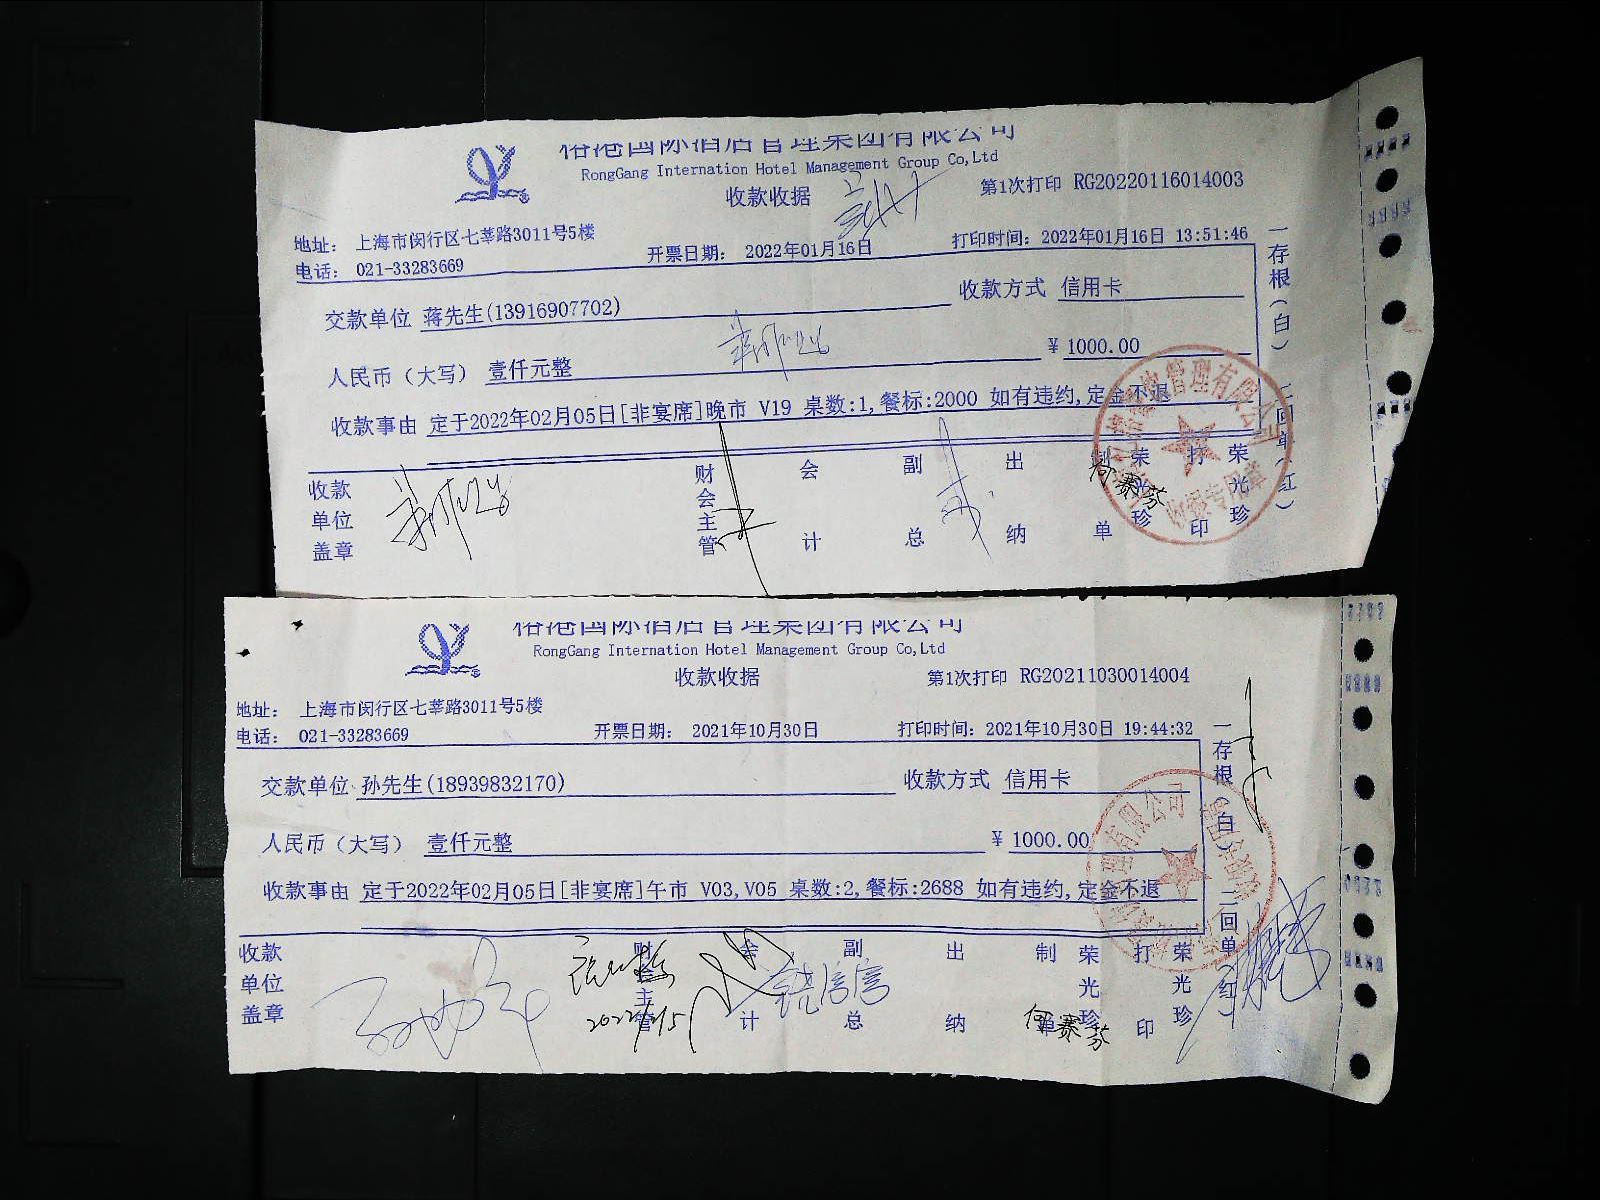 裕港国际酒店管理集团有限公司
RongGang Internation Hotel Management Group Co,Ltd
收款收据
第1次打印 RG20220116014003
地址： 上海市闵行区七莘路3011号5楼
电话： 021-33283669
开票日期： 2022年01月16日
打印时间：2022年01月16日 13:51:46
交款单位 蒋先生(13916907702)
收款方式 信用卡
人民币（大写） 壹仟元整
¥ 1000.00
收款事由 定于2022年02月05日[非宴席]晚市 V19 桌数:1,餐标:2000 如有违约,定金不退
收款单位盖章
财会主管
会计
副总
出纳
制单 荣光珍
何赛芬
打印 荣光珍
一存根（白） 二回单（红）
裕港国际酒店管理集团有限公司
RongGang Internation Hotel Management Group Co,Ltd
收款收据
第1次打印 RG20211030014004
地址： 上海市闵行区七莘路3011号5楼
电话： 021-33283669
开票日期： 2021年10月30日
打印时间：2021年10月30日 19:44:32
交款单位 孙先生(18939832170)
收款方式 信用卡
人民币（大写） 壹仟元整
¥ 1000.00
收款事由 定于2022年02月05日[非宴席]午市 V03,V05 桌数:2,餐标:2688 如有违约,定金不退
收款单位盖章
财会主管
会计
副总
出纳
制单 荣光珍
何赛芬
打印 荣光珍
一存根（白） 二回单（红）